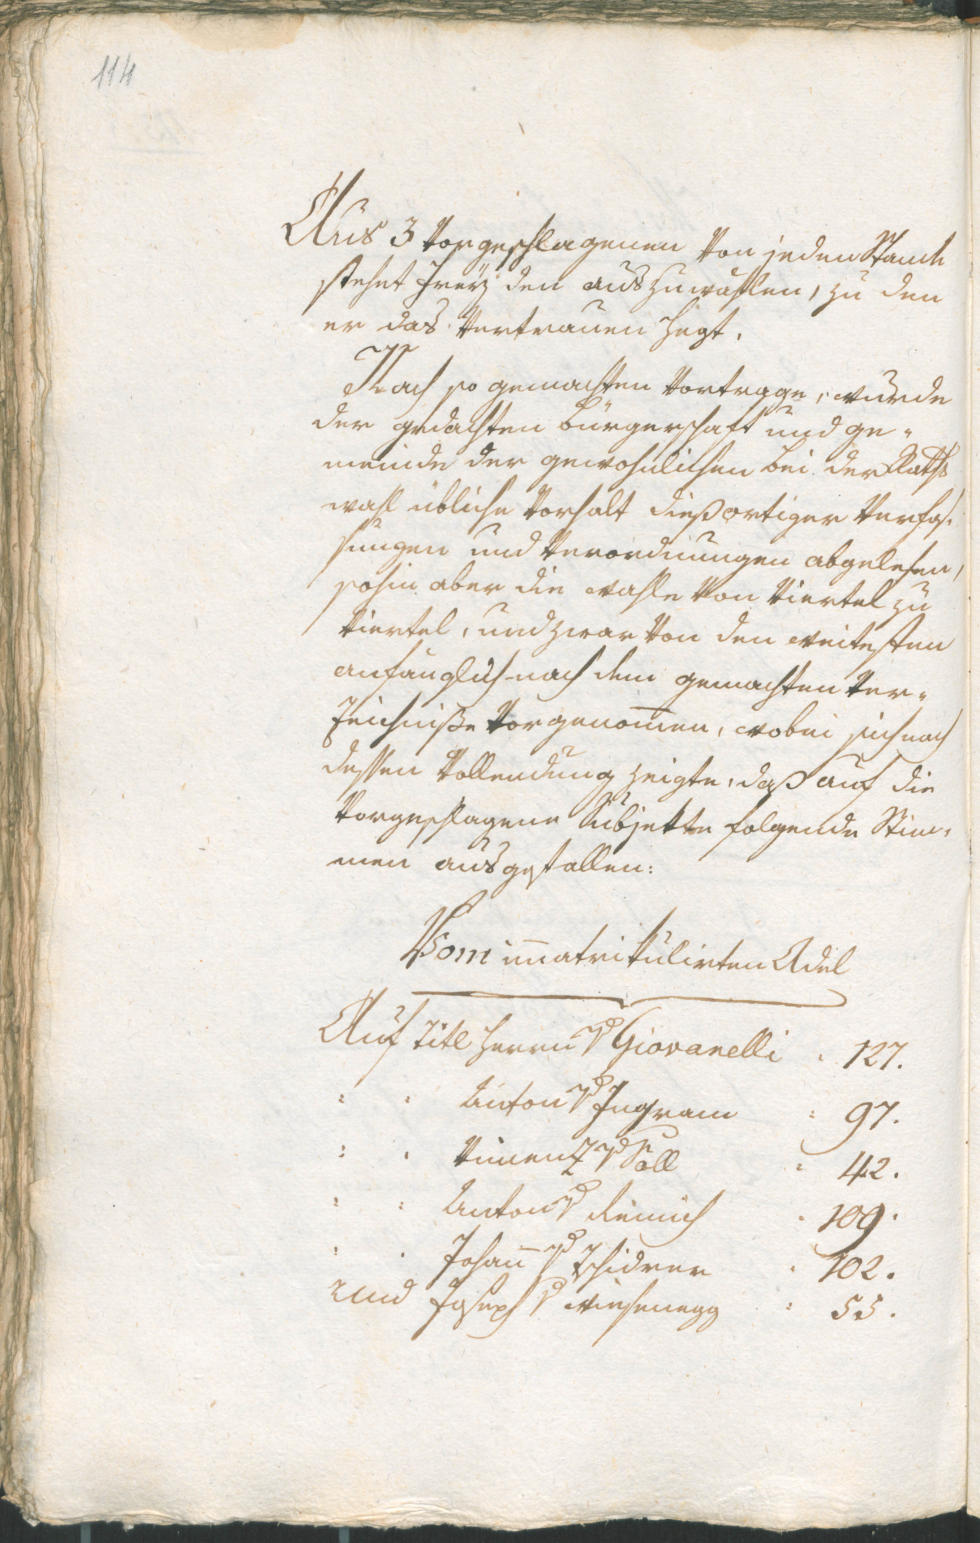 114
Aus 3 Vorgeschlagenen von jeden Stande
stehet frey den auszuwählen, zu den
er das Vertrauen hegt.
Nach so gemachten Vortrage, wurde
der gedachten Bürgerschaft und ge-
meinde der gewohnlichen bei der Raths
wahl übliche Vorhalt dießortiger Verfas-
sungen und Verordnungen abgelesen,
sohin aber die wahle von Viertel zu
Viertel, und zwar von den weitesten
anfänglich nach dem gemachten Ver-
zeichniße vorgenom̅en, wobei sich nach
dessen Vollendung zeigte, daß auf die
Vorgeschlagene Subjekte folgende Stim-
men ausgefallen:
Vom immatrikulirten Adel
Auf Titl Herrn v Giovanelli : 127.
: : Anton v Ingram : 97.
: : Vincenz v Söll : 42.
: : Anton v Remich : 109.
: : Johan̅ v Tschidrer : 102.
und Joseph v Wiesenegg : 55.